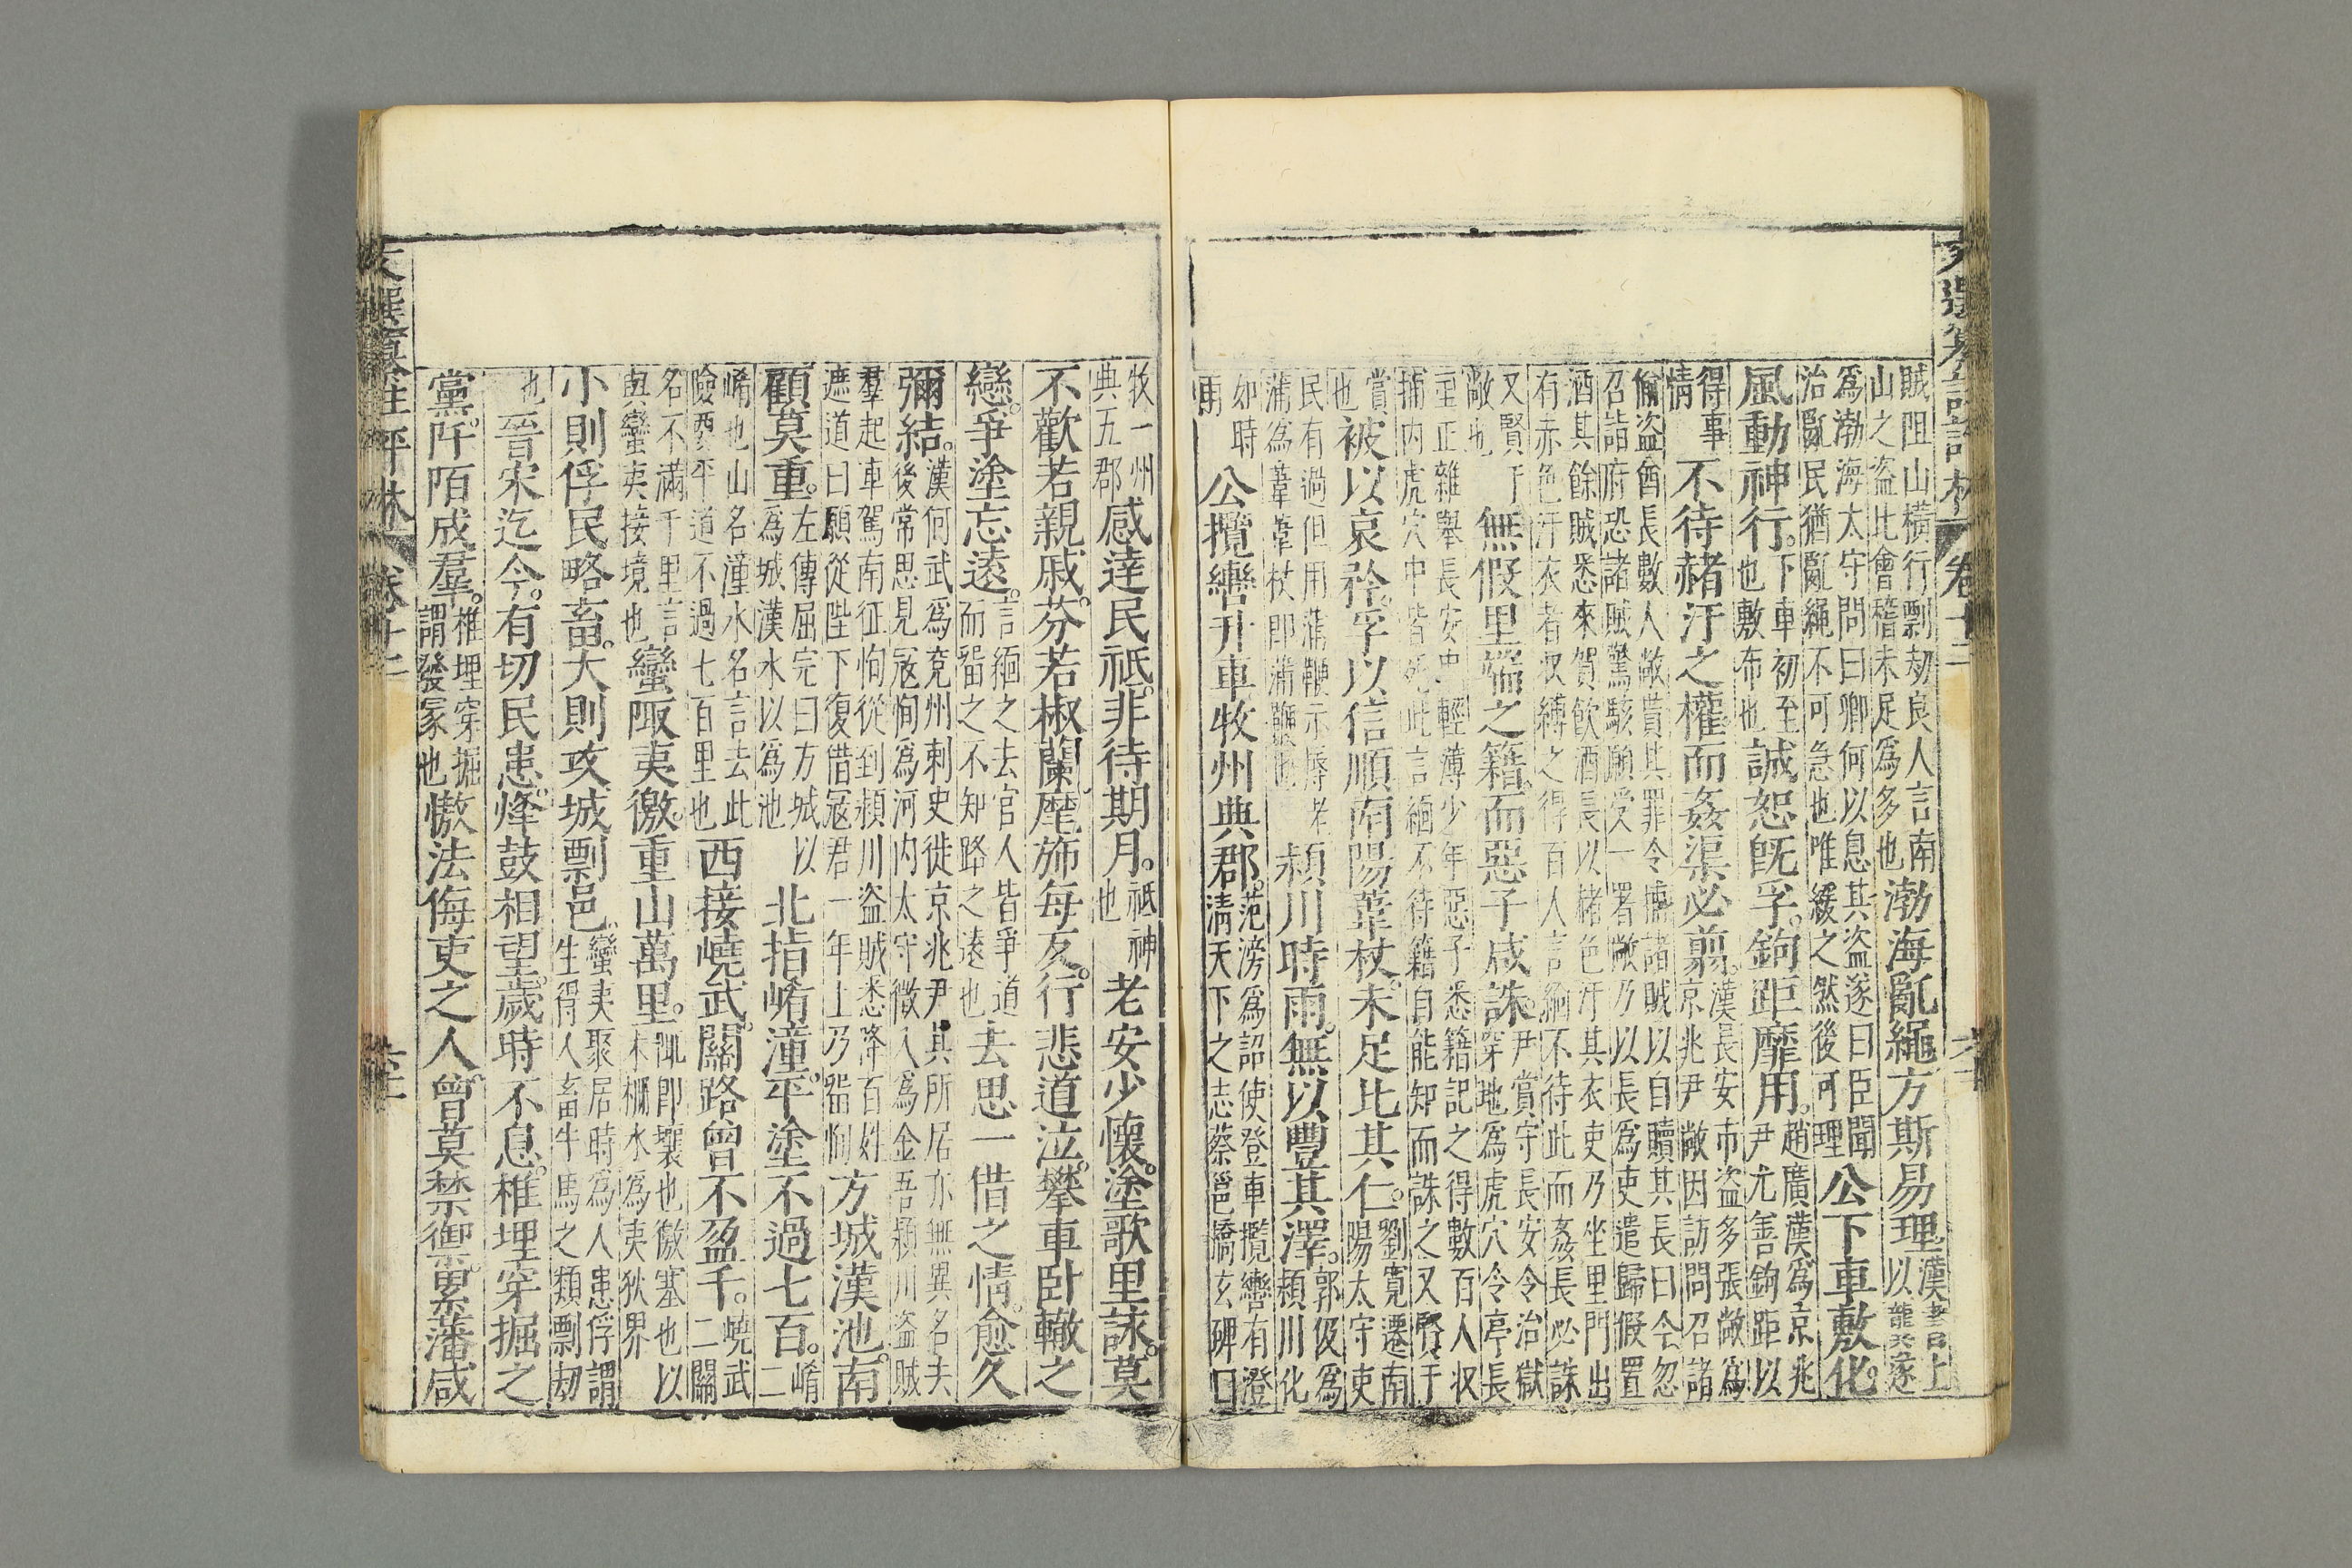 文選纂註評林 卷十二
賊阻山橫行剽刼良人言南山之盜比會稽未足爲多也渤海亂繩方斯易理。漢書曰上以龔遂
爲渤海太守問曰卿何以息其盜遂曰臣聞治亂民猶亂繩不可急也唯緩之然後可理公下車敷化。
風動神行。下車初至也敷布也誠恕旣孚。鉤距靡用。趙廣漢爲京兆尹尤善鉤距以
得事情不待赭汙之權。而姦渠必翦。漢長安市盜多張敞爲京兆尹敞因訪問召諸
偷盜酋長數人敞責其罪令擒諸賊以自贖其長曰今忽召詣府恐諸賊驚駭願受一署敞乃以長爲吏遣歸假置
酒其餘賊悉來賀飲酒長以赭色汙其衣吏乃坐里門出有赤色汙衣者収縛之得百人言緬不待此而姦長必誅
又賢于敞也無假里端之籍。而惡子咸誅。尹賞守長安令治獄穿地爲虎穴令亭長
里正雜舉長安中輕薄少年惡子悉籍記之得數百人収捕内虎穴中皆死此言緬不待籍自能知而誅之又賢于
賞也被以哀矜。孚以信順南陽葦杖。未足比其仁。劉寬遷南陽太守吏
民有過但用蒲鞭示辱老蒲爲葦葦杖即蒲鞭也潁川時雨。無以豐其澤。郭伋爲潁川化
如時雨公攬轡升車牧州典郡。范滂爲詔使登車攬轡有澄清天下之志蔡邕橋玄碑曰
牧一州典五郡感達民祇。非待期月。祇神也老安少懷。塗歌里詠。莫
不歡若親戚。芬若椒蘭。麾斾每反。行悲道泣。攀車卧轍之
戀。爭塗忘遠。言緬之去官人皆爭道而畱之不知路之遠也去思一借之情。愈久
彌結。漢何武爲兗州刺史徙京兆尹其所居亦無異名去後常思見寇恂爲河内太守徵入爲金吾潁川盜賊
羣起車駕南征恂從到潁川盜賊悉降百姓遮道曰願從陛下復借寇君一年上乃畱恂方城漢池。南
顧莫重。左傳屈完曰方城以爲城漢水以爲池北指崤潼。平塗不過七百。崤二
崤也山名潼水名言去此險要平道不過七百里也西接嶢武。關路曾不盈千。嶢武二關
名不滿千里言與蠻夷接境也蠻陬夷徼。重山萬里。陬即壤也徼塞也以木柵水爲夷狄界
小則俘民略畜。大則攻城剽邑。蠻夷聚居時爲人患俘謂生得人畜牛馬之類剽刼
也晉宋迄今。有切民患。烽鼓相望。歲時不息。椎埋穿掘之
黨。阡陌成羣。椎埋穿掘謂發冢也慠法侮吏之人。曾莫禁禦。累藩咸
文選纂註評林 卷十二